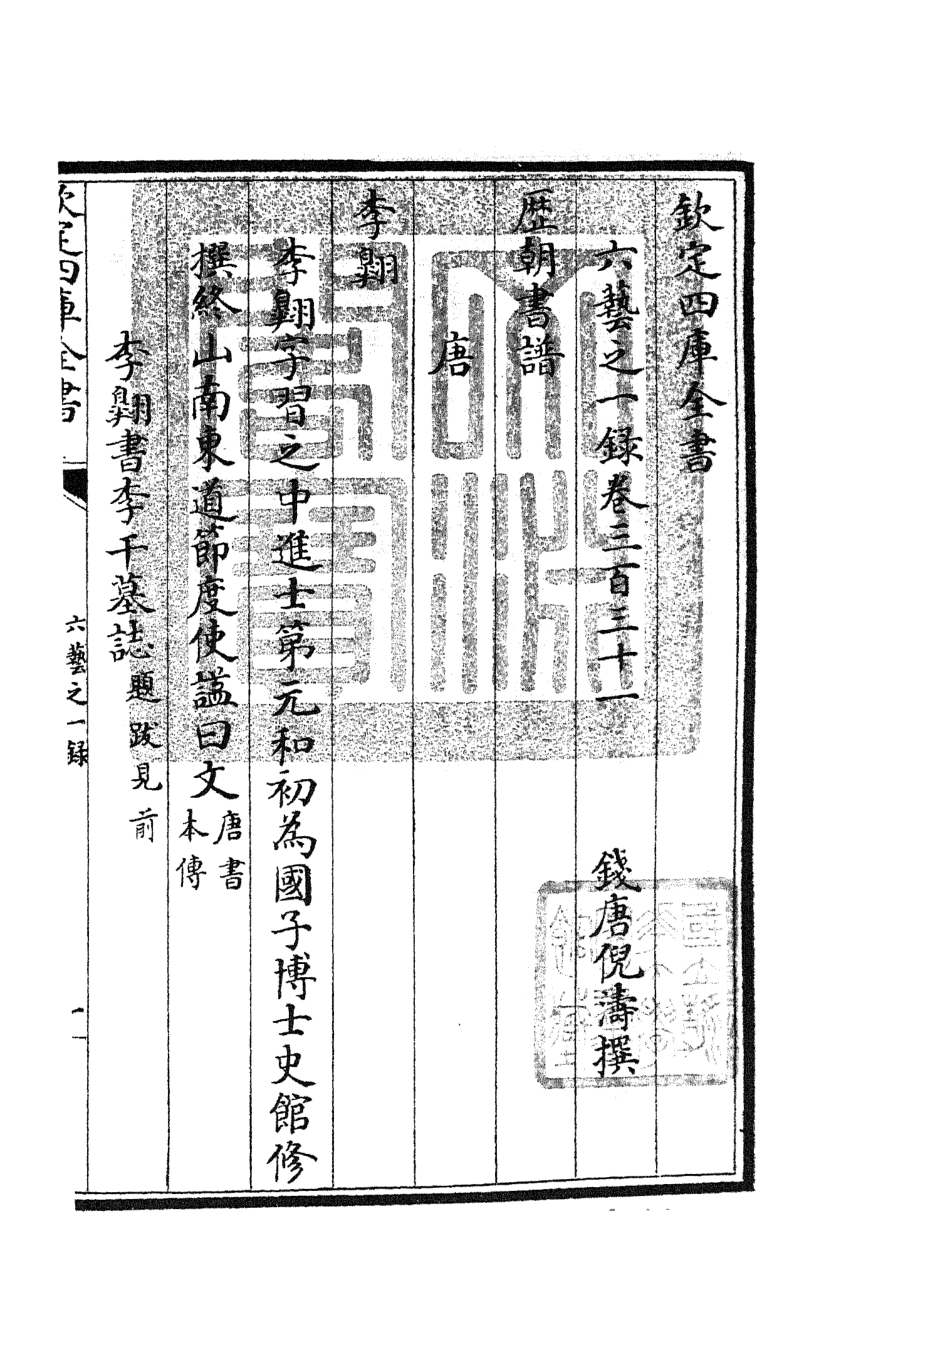 欽定四庫全書
六藝之一録卷三百三十一
錢唐倪濤撰
歷朝書譜
唐
李翺
李翺字習之中進士第元和初為國子博士史館修
撰終山南東道節度使謚曰文唐書
本傳
李翺書李干墓誌題跋見前
欽定四庫全書
六藝之一録
一